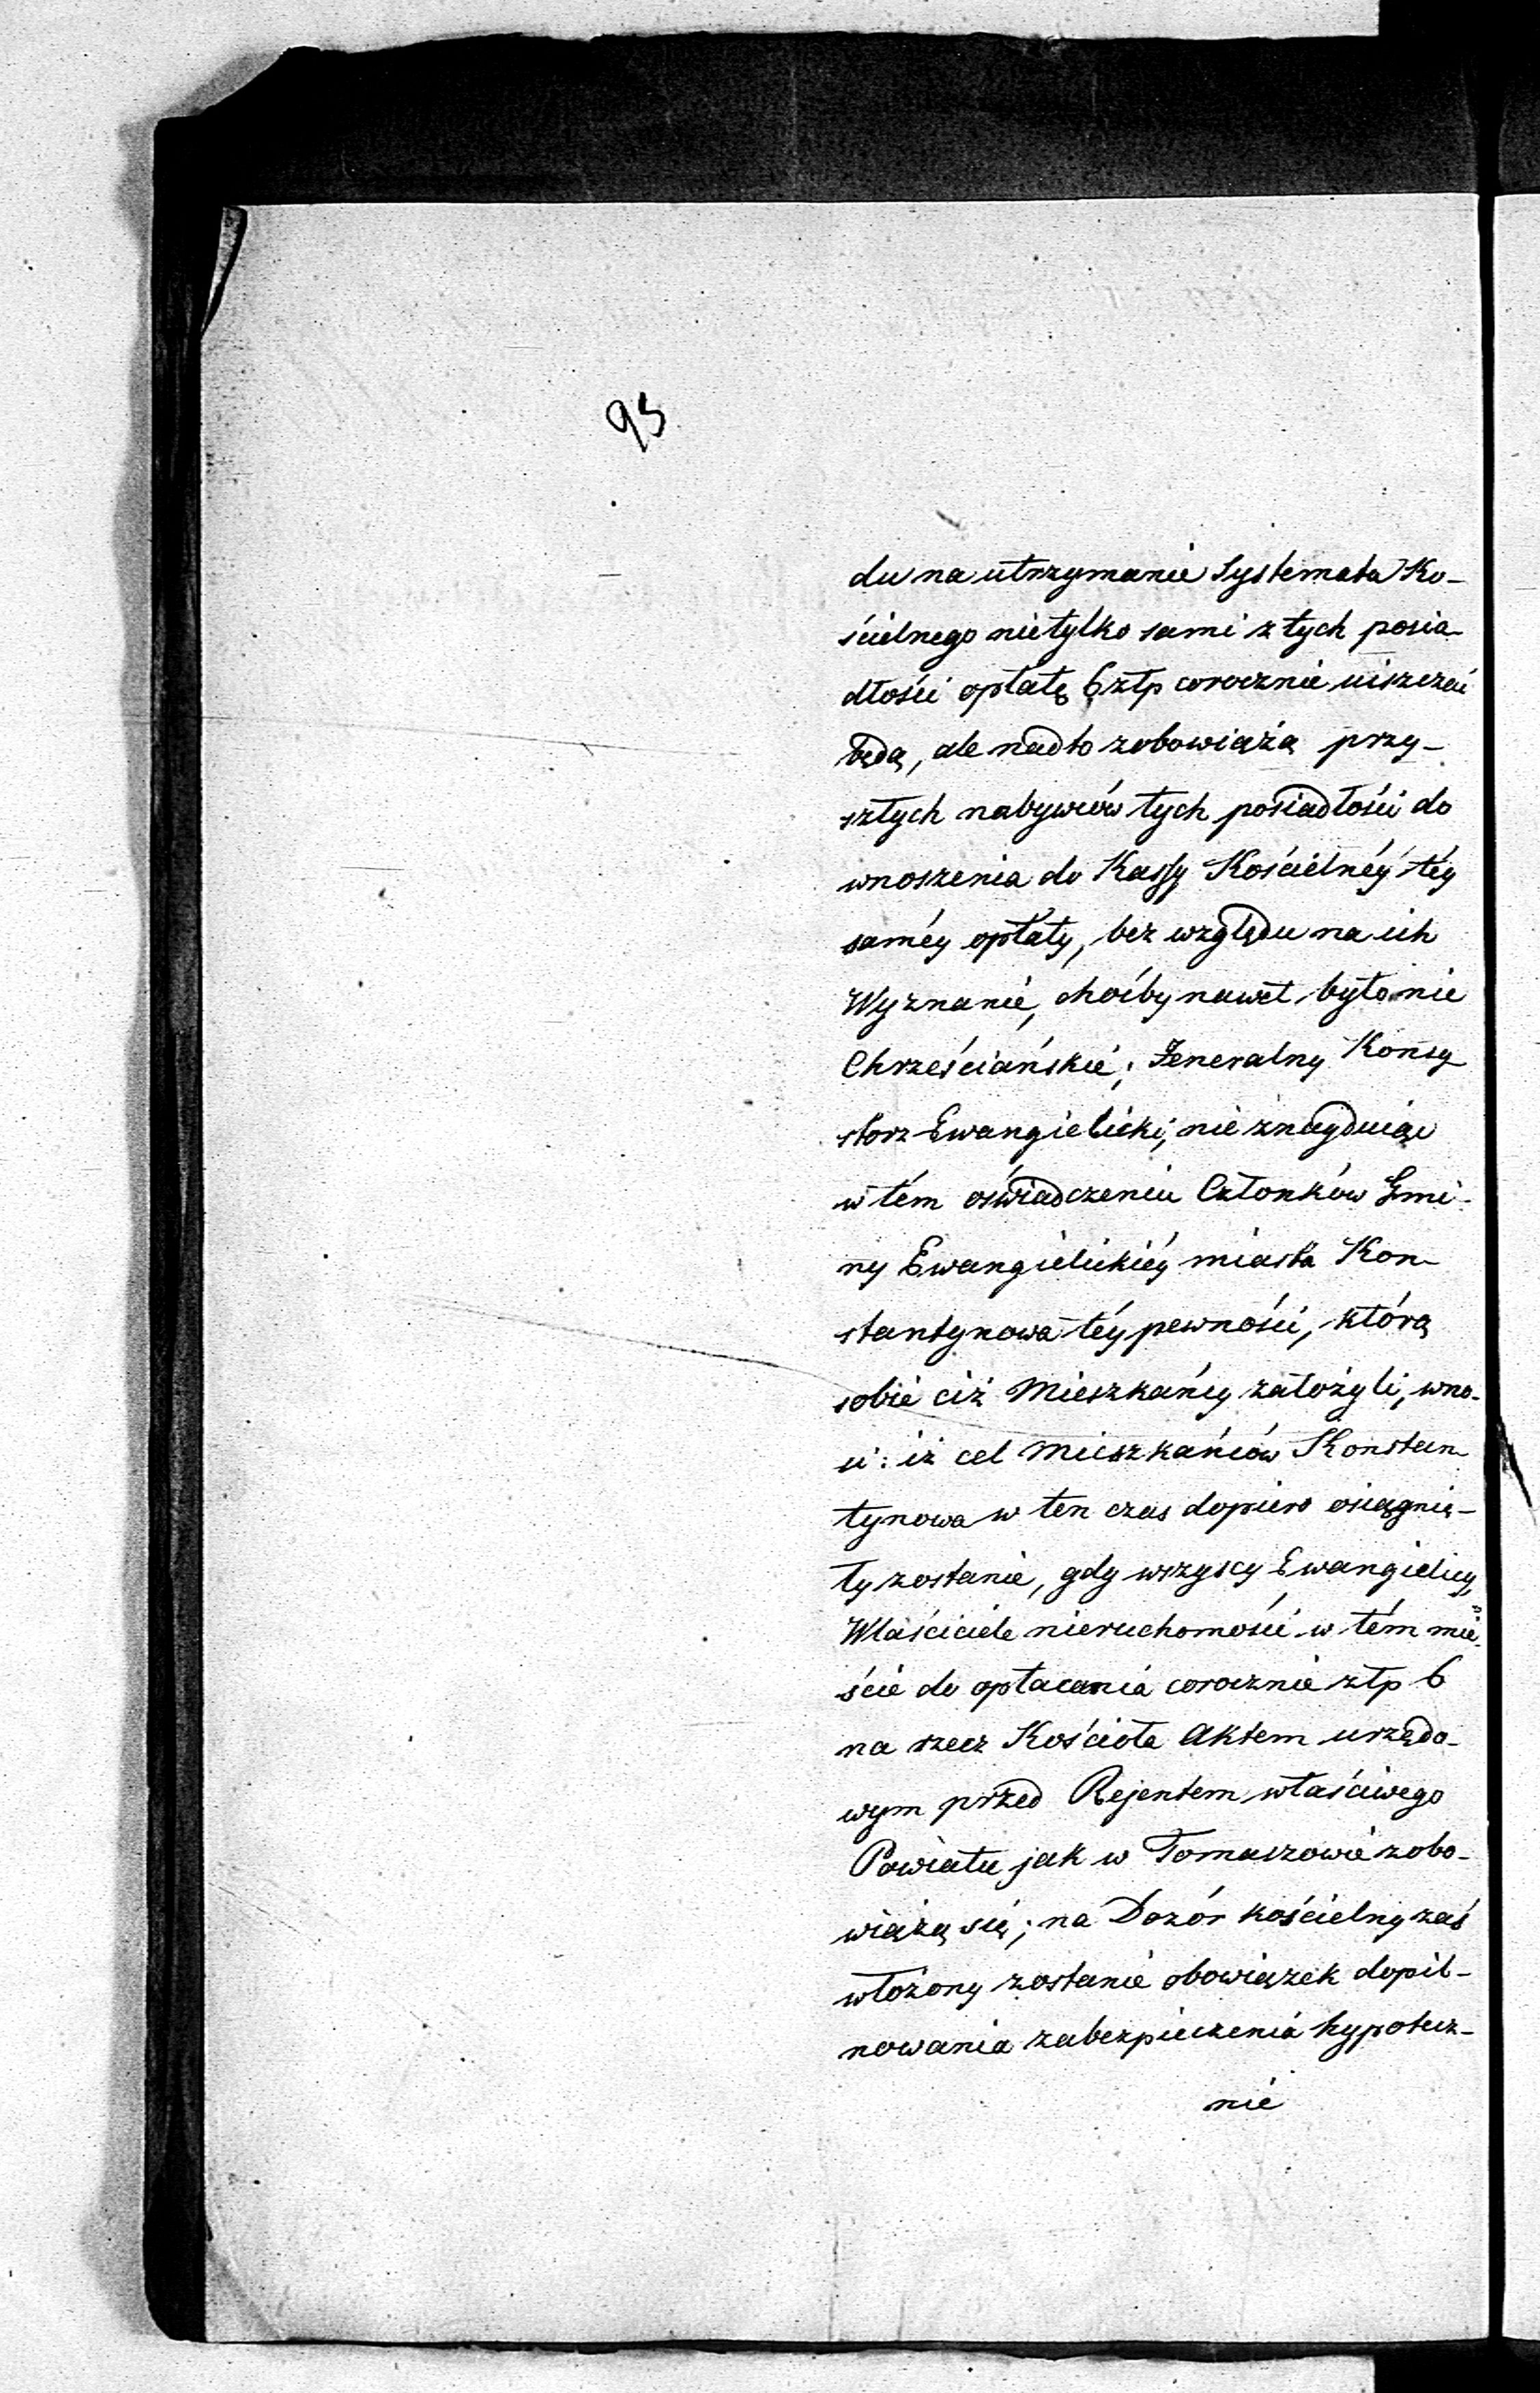 93
du na utrzymanie Systemata Ko-
ścielnego nietylko sami z tych posia-
dłości opłatę 6 złp corocznie uiszczać
będą, ale nadto zobowiążą przy-
szłych nabywców tych posiadłości do
wnoszenia do Kassy Kościelnéy téy
saméy opłaty, bez względu na ich
Wyznanie, choćby nawet było nie
Chrześciańskie; Jeneralny Konsy-
storz Ewangielicki, nie znayduiąc
w tém oświadczeniu Członków Gmi-
ny Ewangielickiéy miasta Kon-
stantynowa téy pewności, którą
sobie ciż Mieszkańcy założyli, wno-
si: iż cel Mieszkańców Konstan
tynowa w ten czas dopiero osiągnię-
ty zostanie, gdy wszyscy Ewangielicy,
Właściciele nieruchomości w tém mie-
ście do opłacania corocznie złp 6
na rzecz Kościoła Aktem urzędo-
wym przed Rejentem właściwego
Powiatu jak w Tomaszowie zobo-
wiążą się; na Dozór kościelny zaś
włożony zostanie obowiązek dopil-
nowania zabezpieczenia hypotecz-
nie